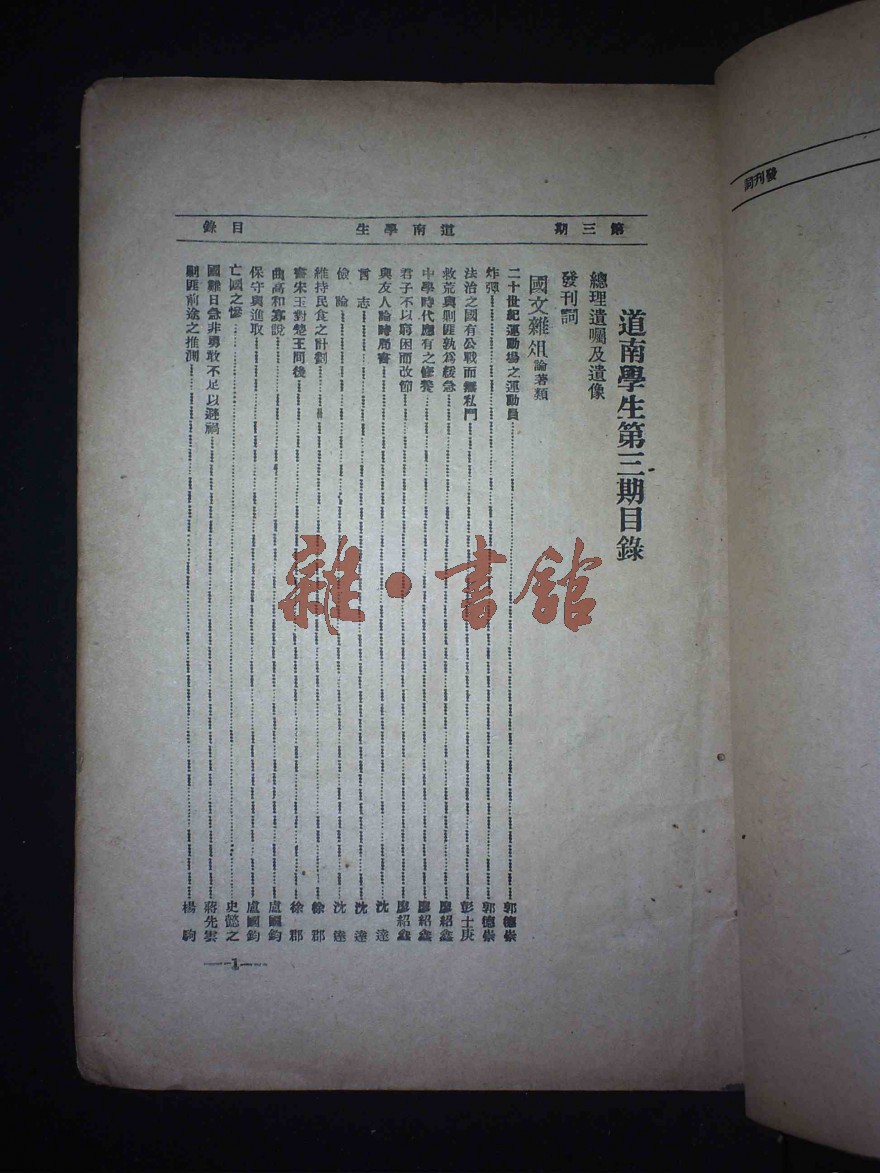 發刊詞
第三期 道南學生 目錄
道南學生第三期目錄
總理遺囑及遺像
發刊詞
國文雜俎 論著類
二十世紀運動場之運動員 郭德崇
炸彈 郭德崇
法治之國有公戰而無私鬥 彭士庚
救荒與剿匪孰為緩急 廖紹鑫
中學時代應有之修養 廖紹鑫
君子不以窮困而改節 廖紹鑫
與友人論時局書 沈達
言志 沈達
儉論 沈達
維持民食之計劃 徐郡
書宋玉對楚王問後 徐郡
曲高和寡說 盧國鈞
保守與進取 盧國鈞
亡國之慘 史懿之
國難日急非勇敢不足以避禍 蔣先雲
剿匪前途之推測 楊駒
—1—
雜·書館